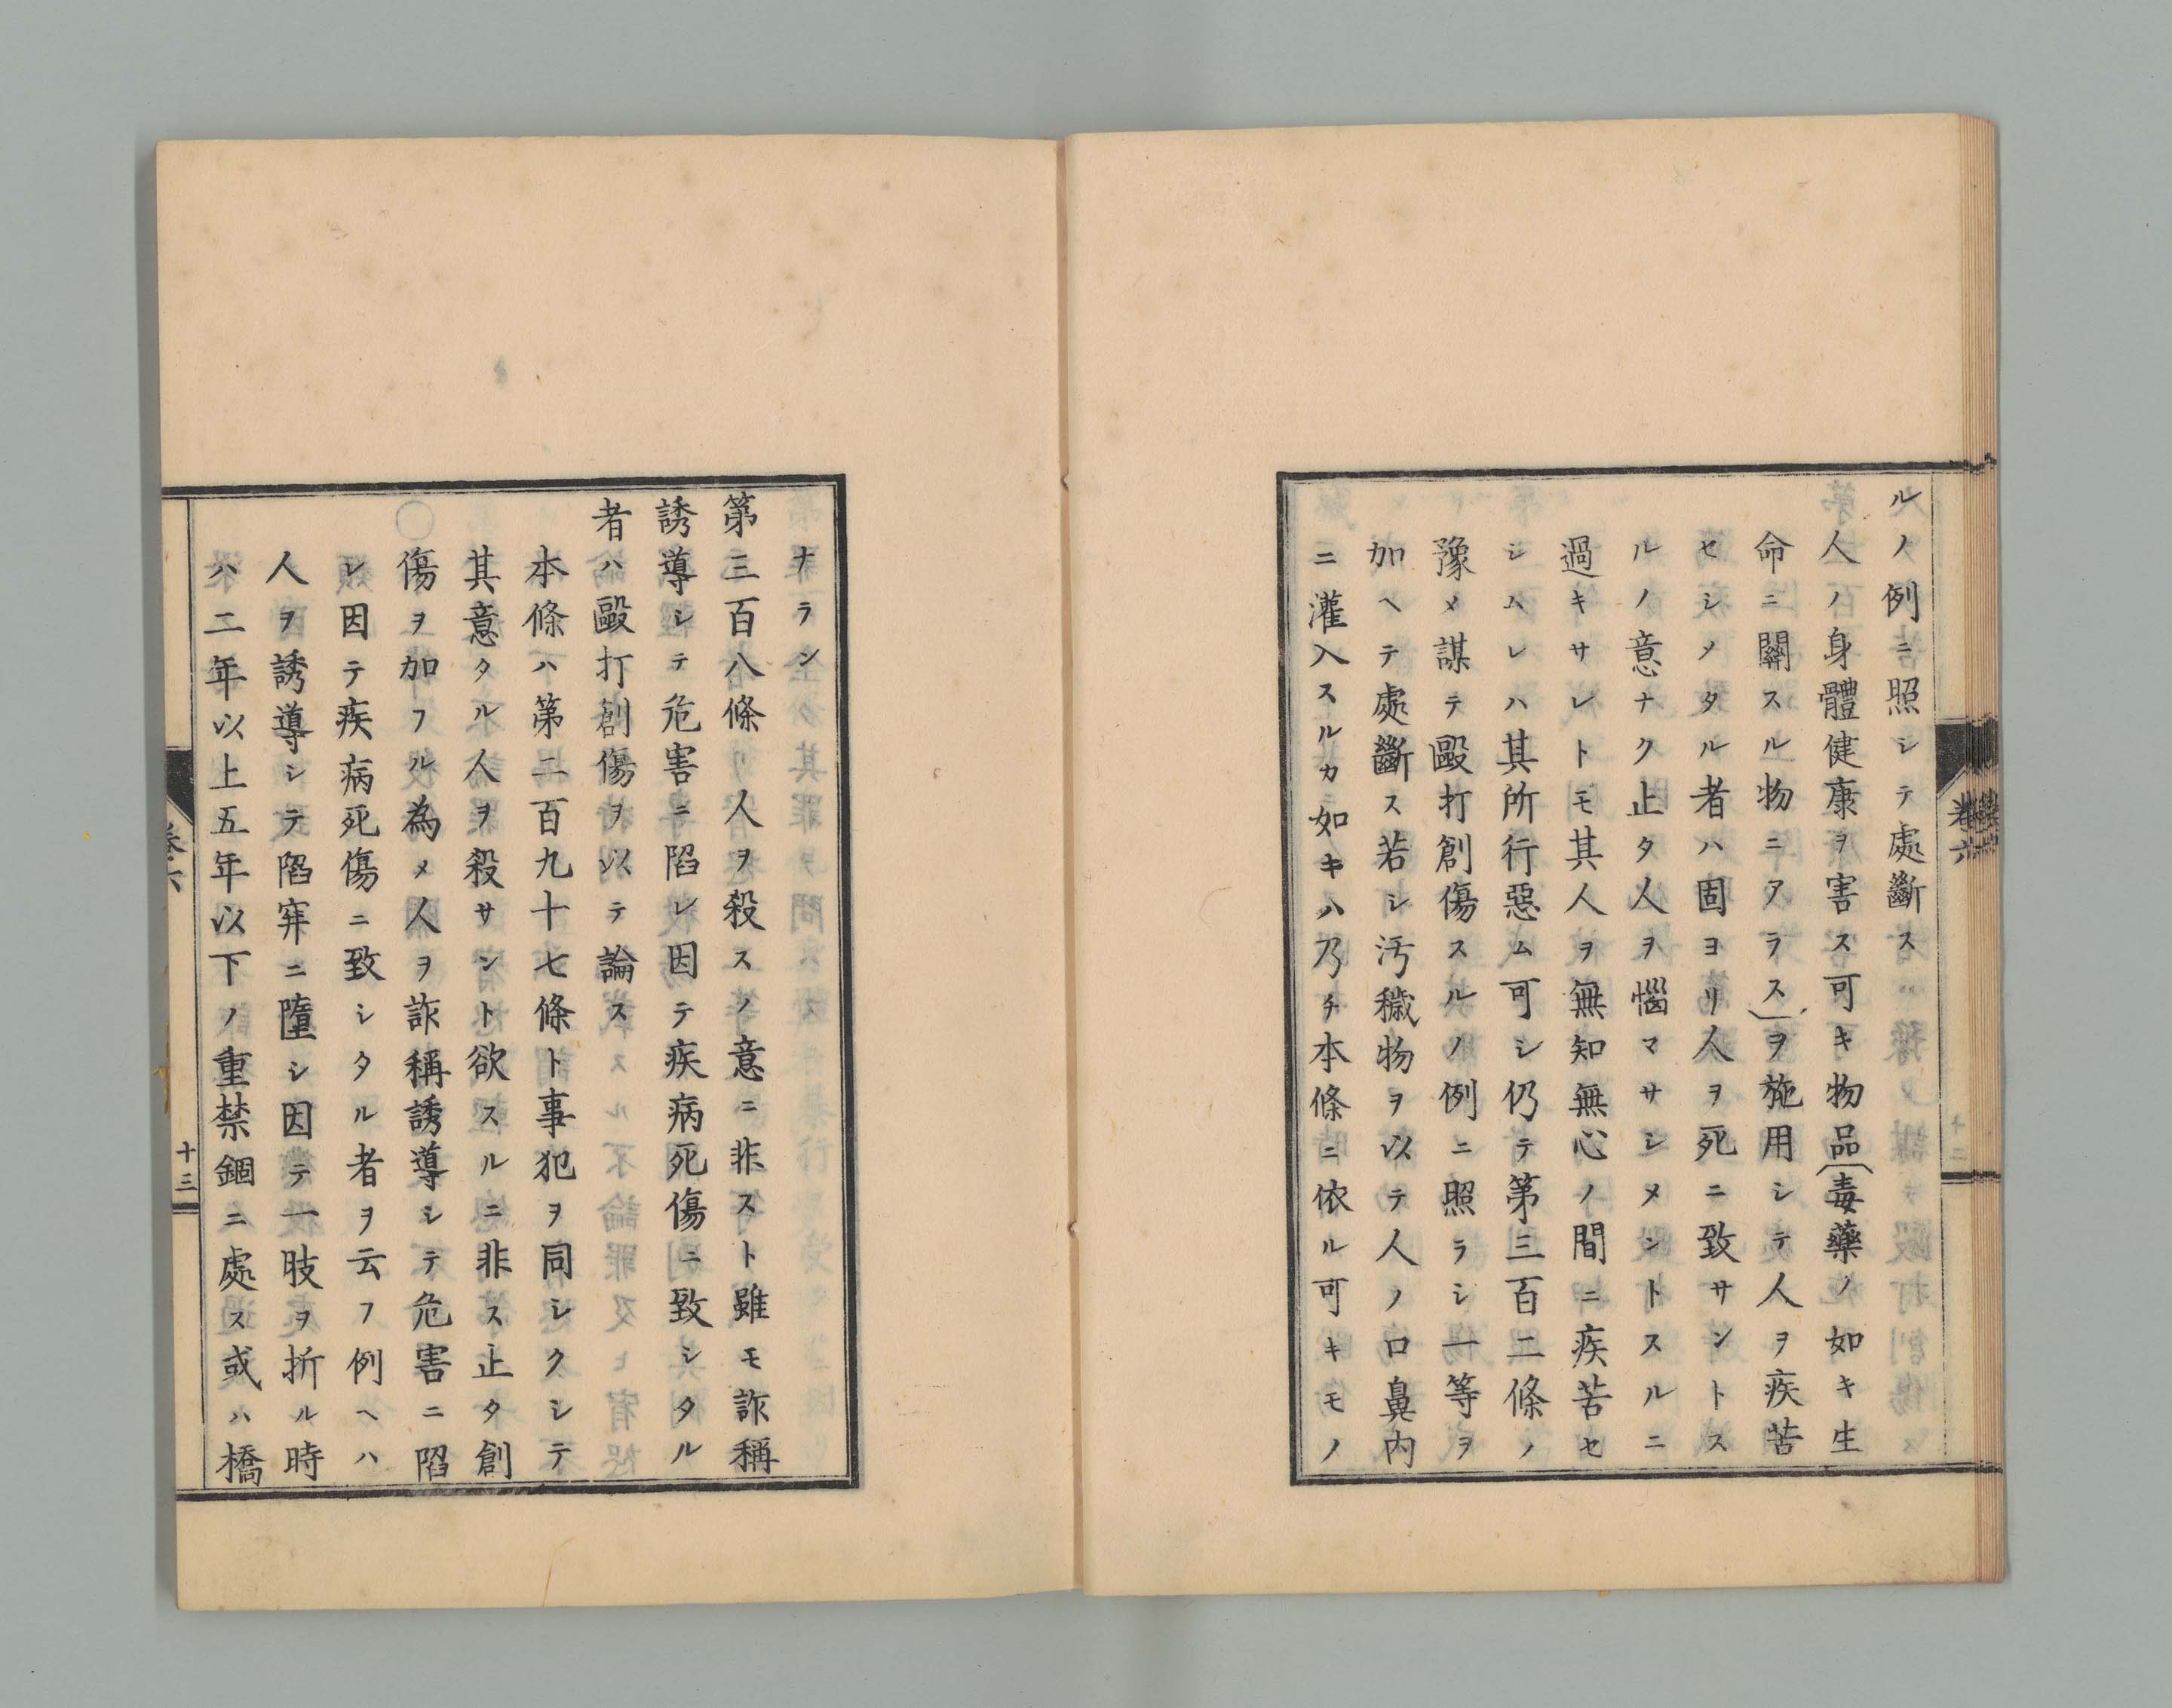 ルノ例ニ照シテ處斷ス
人ノ身體健康ヲ害ス可キ物品(毒藥ノ如キ生
命ニ關スル物ニアラス)ヲ施用シテ人ヲ疾苦
セシメタル者ハ固ヨリ人ヲ死ニ致サントス
ルノ意ナク止タ人ヲ惱マサシメントスルニ
過キサレトモ其人ヲ無知無心ノ間ニ疾苦セ
シムレハ其所行惡ム可シ仍テ第三百二條ノ
豫メ謀テ毆打創傷スルノ例ニ照ラシ一等ヲ
加ヘテ處斷ス若シ汚穢物ヲ以テ人ノ口鼻内
ニ灌入スルカ如キハ乃チ本條ニ依ル可キモノ
卷六
十二
ナラン
第三百八條 人ヲ殺スノ意ニ非スト雖モ詐稱
誘導シテ危害ニ陷レ因テ疾病死傷ニ致シタル
者ハ毆打創傷ヲ以テ論ス
本條ハ第二百九十七條ト事犯ヲ同シクシテ
其意タル人ヲ殺サント欲スルニ非ス止タ創
傷ヲ加フル為メ人ヲ詐稱誘導シテ危害ニ陷
レ因テ疾病死傷ニ致シタル者ヲ云フ例ヘハ
人ヲ誘導シテ陷穽ニ墮シ因テ一肢ヲ折ル時
ハ二年以上五年以下ノ重禁錮ニ處ス或ハ橋
卷六
十三